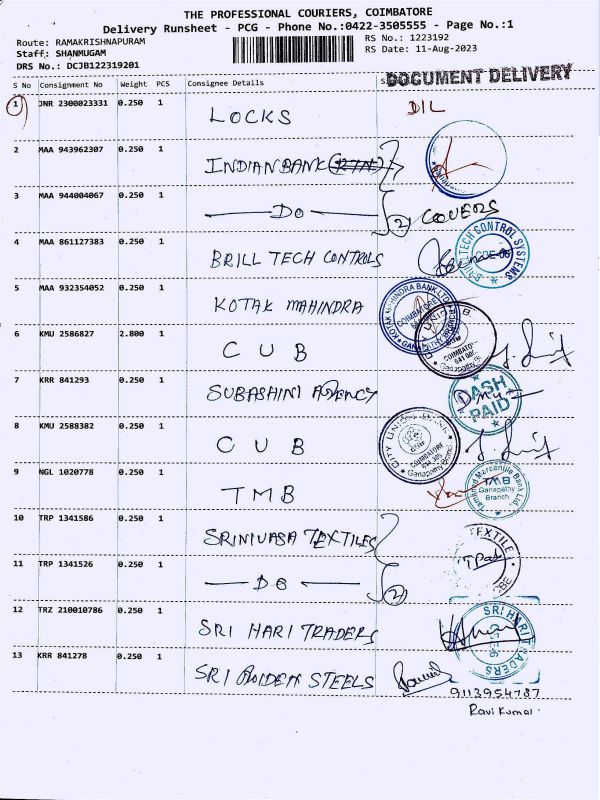 THE PROFESSIONAL COURIERS, COIMBATORE
Delivery Runsheet - PCG - Phone No.:0422-3505555 - Page No.:1
Route: RAMAKRISHNAPURAM
RS No.: 1223192
Staff: SHANMUGAM
RS Date: 11-Aug-2023
DRS No.: DCJB122319201
DOCUMENT DELIVERY
S No Consignment No Weight PCS Consignee Details
1 JNR 2300023331 0.250 1 LOCKS DIL
2 MAA 943962307 0.250 1 INDIAN BANK
3 MAA 944004067 0.250 1 DO 2 COVERS
4 MAA 861127383 0.250 1 BRILL TECH CONTROLS
BRILL TECH CONTROL SYSTEMS
5 MAA 932354052 0.250 1 KOTAK MAHINDRA
KOTAK MAHINDRA BANK LTD
COIMBATORE
6 KMU 2586827 2.800 1 C U B
COIMBATORE
Ganapathy
7 KRR 841293 0.250 1 SUBASHINI AGENCY
CASH PAID
8 KMU 2588382 0.250 1 C U B
CITY UNION BANK
COIMBATORE
Ganapathy Branch
9 NGL 1020778 0.250 1 TMB
Tamilnad Mercantile Bank Ltd.,
TMB
Ganapathy
Branch
10 TRP 1341586 0.250 1 SRINIVASA TEXTILES
TEXTILE
11 TRP 1341526 0.250 1 DO 2
12 TRZ 210010786 0.250 1 SRI HARI TRADERS
SRI HARI TRADERS
13 KRR 841278 0.250 1 SRI GOLDEN STEELS
9113954787
Ravi Kumar.